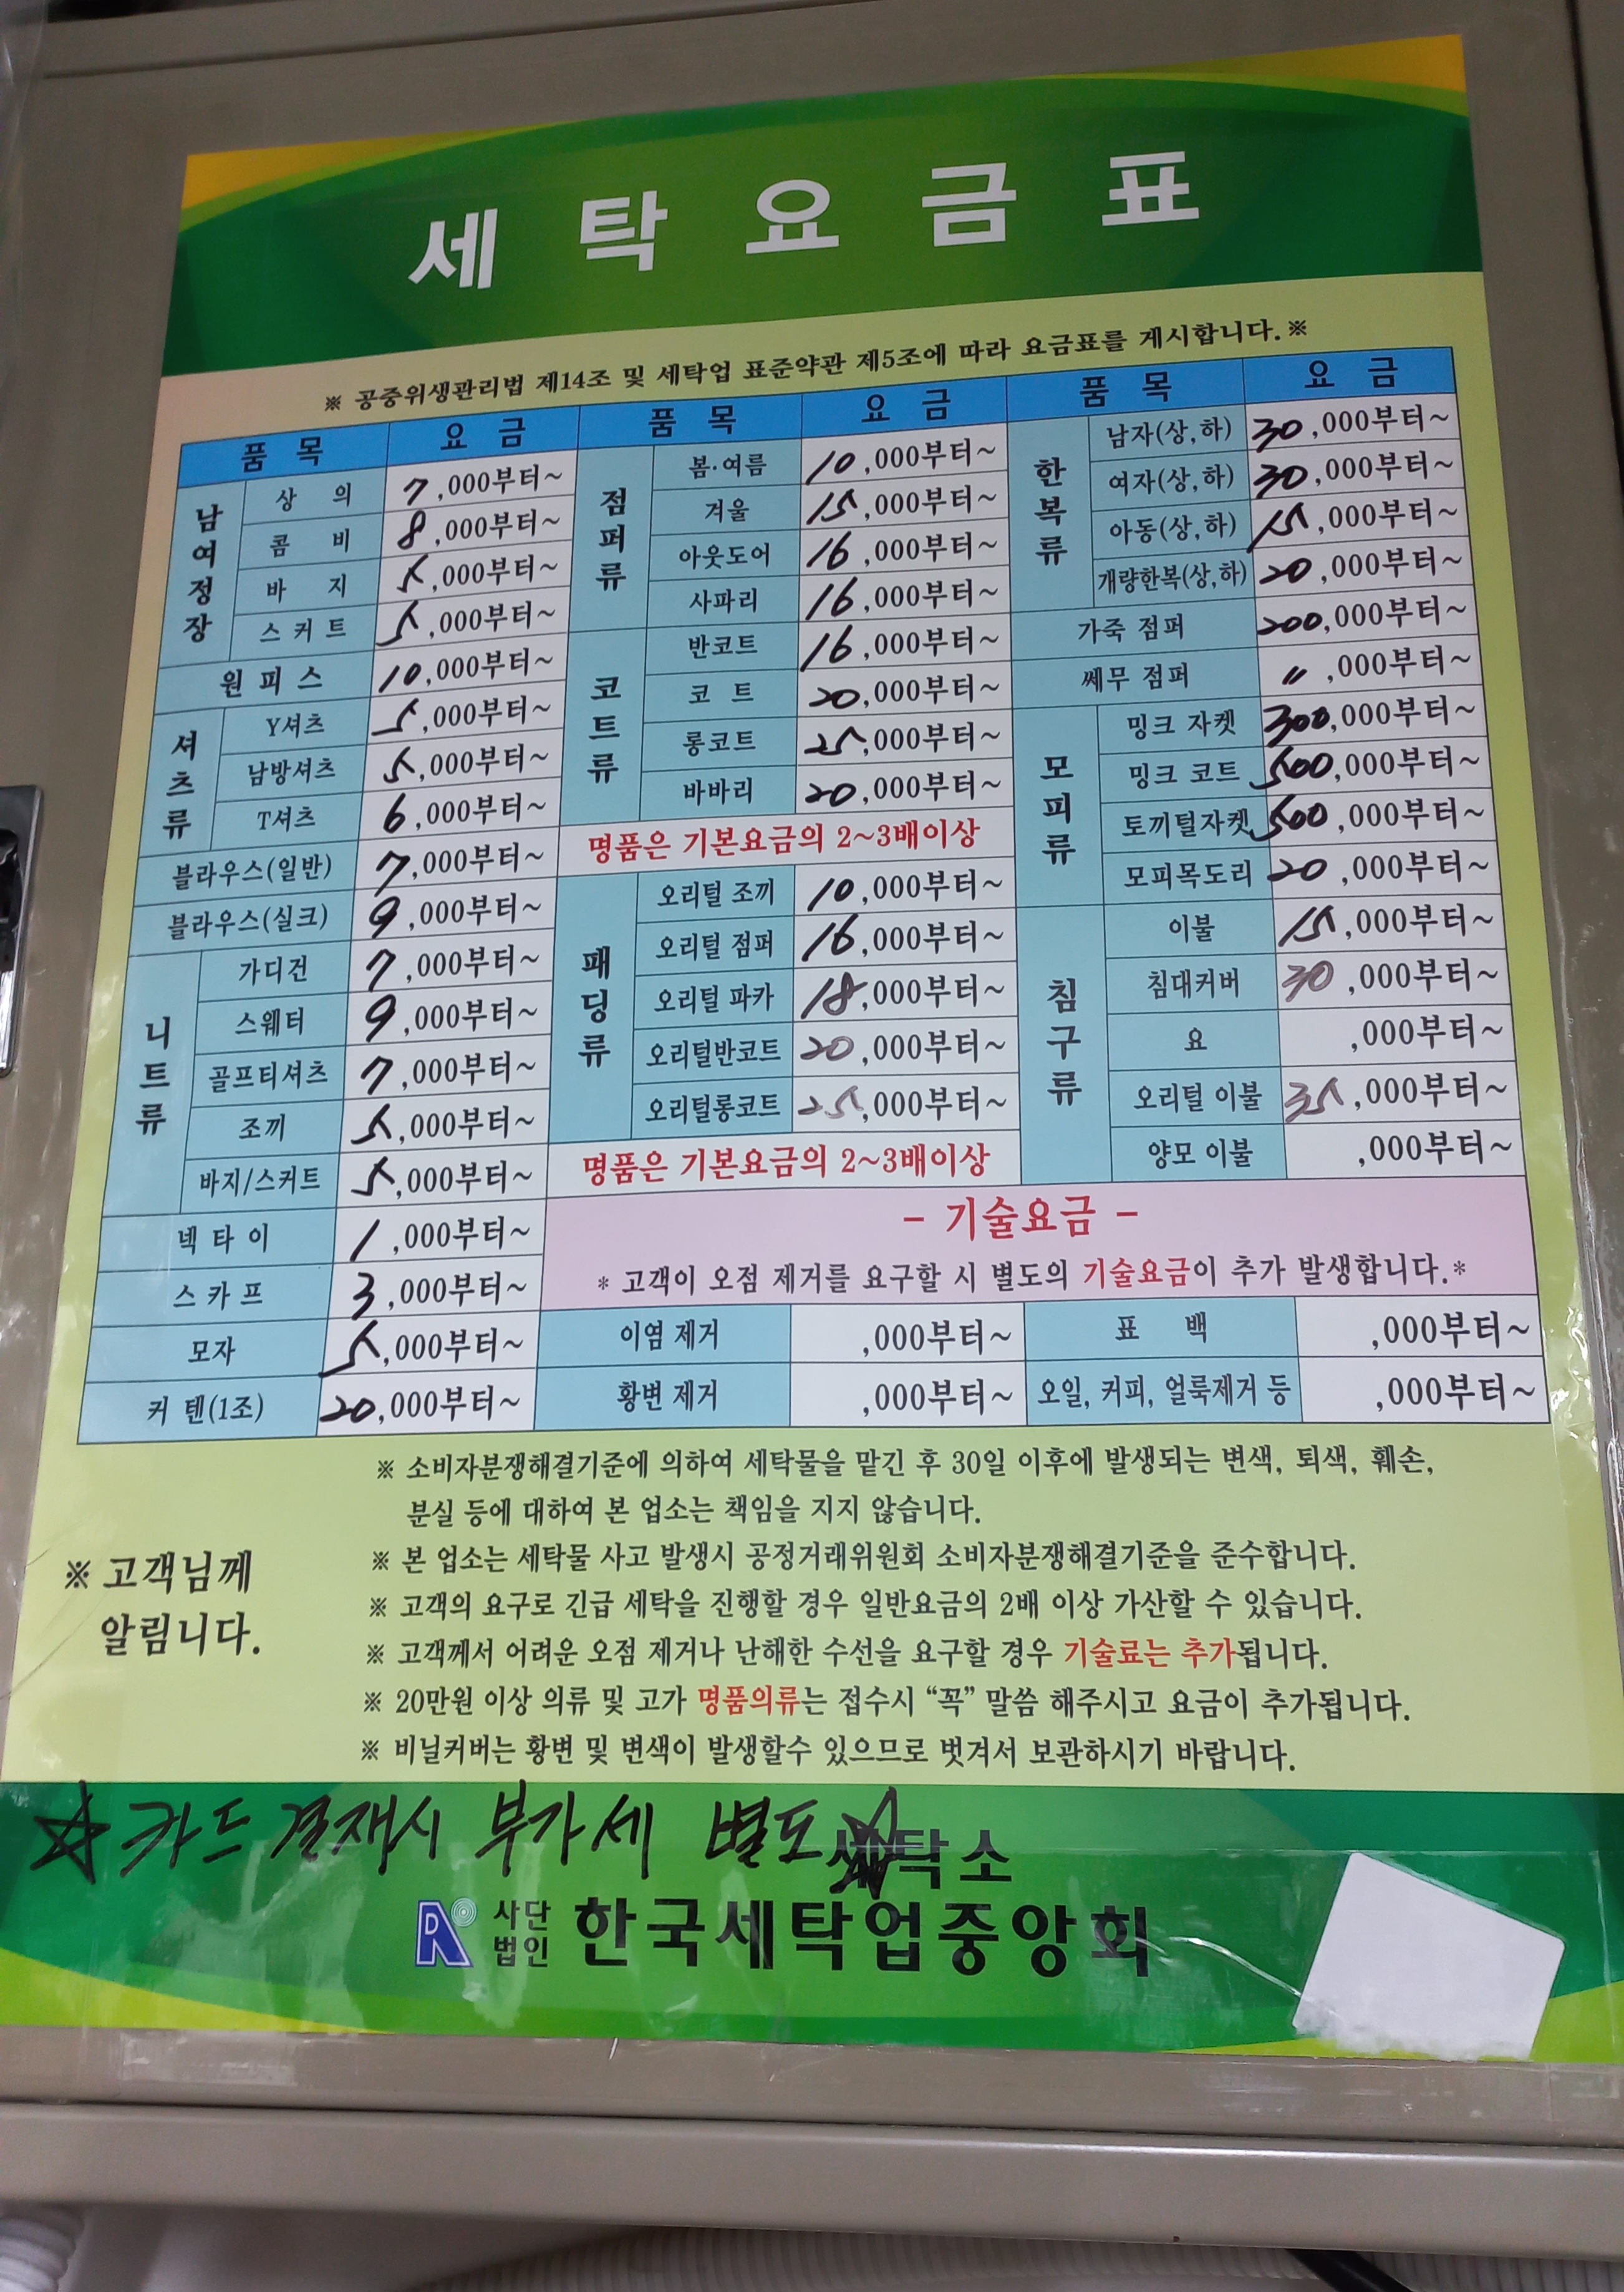 세 탁 요 금 표
※ 공중위생관리법 제14조 및 세탁업 표준약관 제5조에 따라 요금표를 게시합니다.※
품 목 요 금
남여정장
상 의 7,000부터~
콤 비 8,000부터~
바 지 5,000부터~
스 커 트 5,000부터~
원 피 스 10,000부터~
셔츠류
Y셔츠 5,000부터~
남방셔츠 5,000부터~
T셔츠 6,000부터~
블라우스(일반) 7,000부터~
블라우스(실크) 9,000부터~
니트류
가디건 7,000부터~
스웨터 9,000부터~
골프티셔츠 7,000부터~
조끼 5,000부터~
바지/스커트 5,000부터~
넥 타 이 1,000부터~
스 카 프 3,000부터~
모자 5,000부터~
커 텐(1조) 20,000부터~
품 목 요 금
점퍼류
봄·여름 10,000부터~
겨울 15,000부터~
아웃도어 16,000부터~
사파리 16,000부터~
코트류
반코트 16,000부터~
코 트 20,000부터~
롱코트 25,000부터~
바바리 20,000부터~
명품은 기본요금의 2~3배이상
패딩류
오리털 조끼 10,000부터~
오리털 점퍼 16,000부터~
오리털 파카 18,000부터~
오리털반코트 20,000부터~
오리털롱코트 25,000부터~
명품은 기본요금의 2~3배이상
품 목 요 금
한복류
남자(상,하) 30,000부터~
여자(상,하) 30,000부터~
아동(상,하) 15,000부터~
개량한복(상,하) 20,000부터~
가죽 점퍼 200,000부터~
쎄무 점퍼 〃 ,000부터~
모피류
밍크 자켓 300,000부터~
밍크 코트 500,000부터~
토끼털자켓 500,000부터~
모피목도리 20,000부터~
침구류
이불 15,000부터~
침대커버 30,000부터~
요 ,000부터~
오리털 이불 35,000부터~
양모 이불 ,000부터~
- 기술요금 -
* 고객이 오점 제거를 요구할 시 별도의 기술요금이 추가 발생합니다.*
이염 제거 ,000부터~ 표 백 ,000부터~
황변 제거 ,000부터~ 오일, 커피, 얼룩제거 등 ,000부터~
※ 고객님께
알립니다.
※ 소비자분쟁해결기준에 의하여 세탁물을 맡긴 후 30일 이후에 발생되는 변색, 퇴색, 훼손,
분실 등에 대하여 본 업소는 책임을 지지 않습니다.
※ 본 업소는 세탁물 사고 발생시 공정거래위원회 소비자분쟁해결기준을 준수합니다.
※ 고객의 요구로 긴급 세탁을 진행할 경우 일반요금의 2배 이상 가산할 수 있습니다.
※ 고객께서 어려운 오점 제거나 난해한 수선을 요구할 경우 기술료는 추가됩니다.
※ 20만원 이상 의류 및 고가 명품의류는 접수시 “꼭” 말씀 해주시고 요금이 추가됩니다.
※ 비닐커버는 황변 및 변색이 발생할수 있으므로 벗겨서 보관하시기 바랍니다.
☆카드결재시 부가세 별도☆
세탁소
사단법인 한국세탁업중앙회